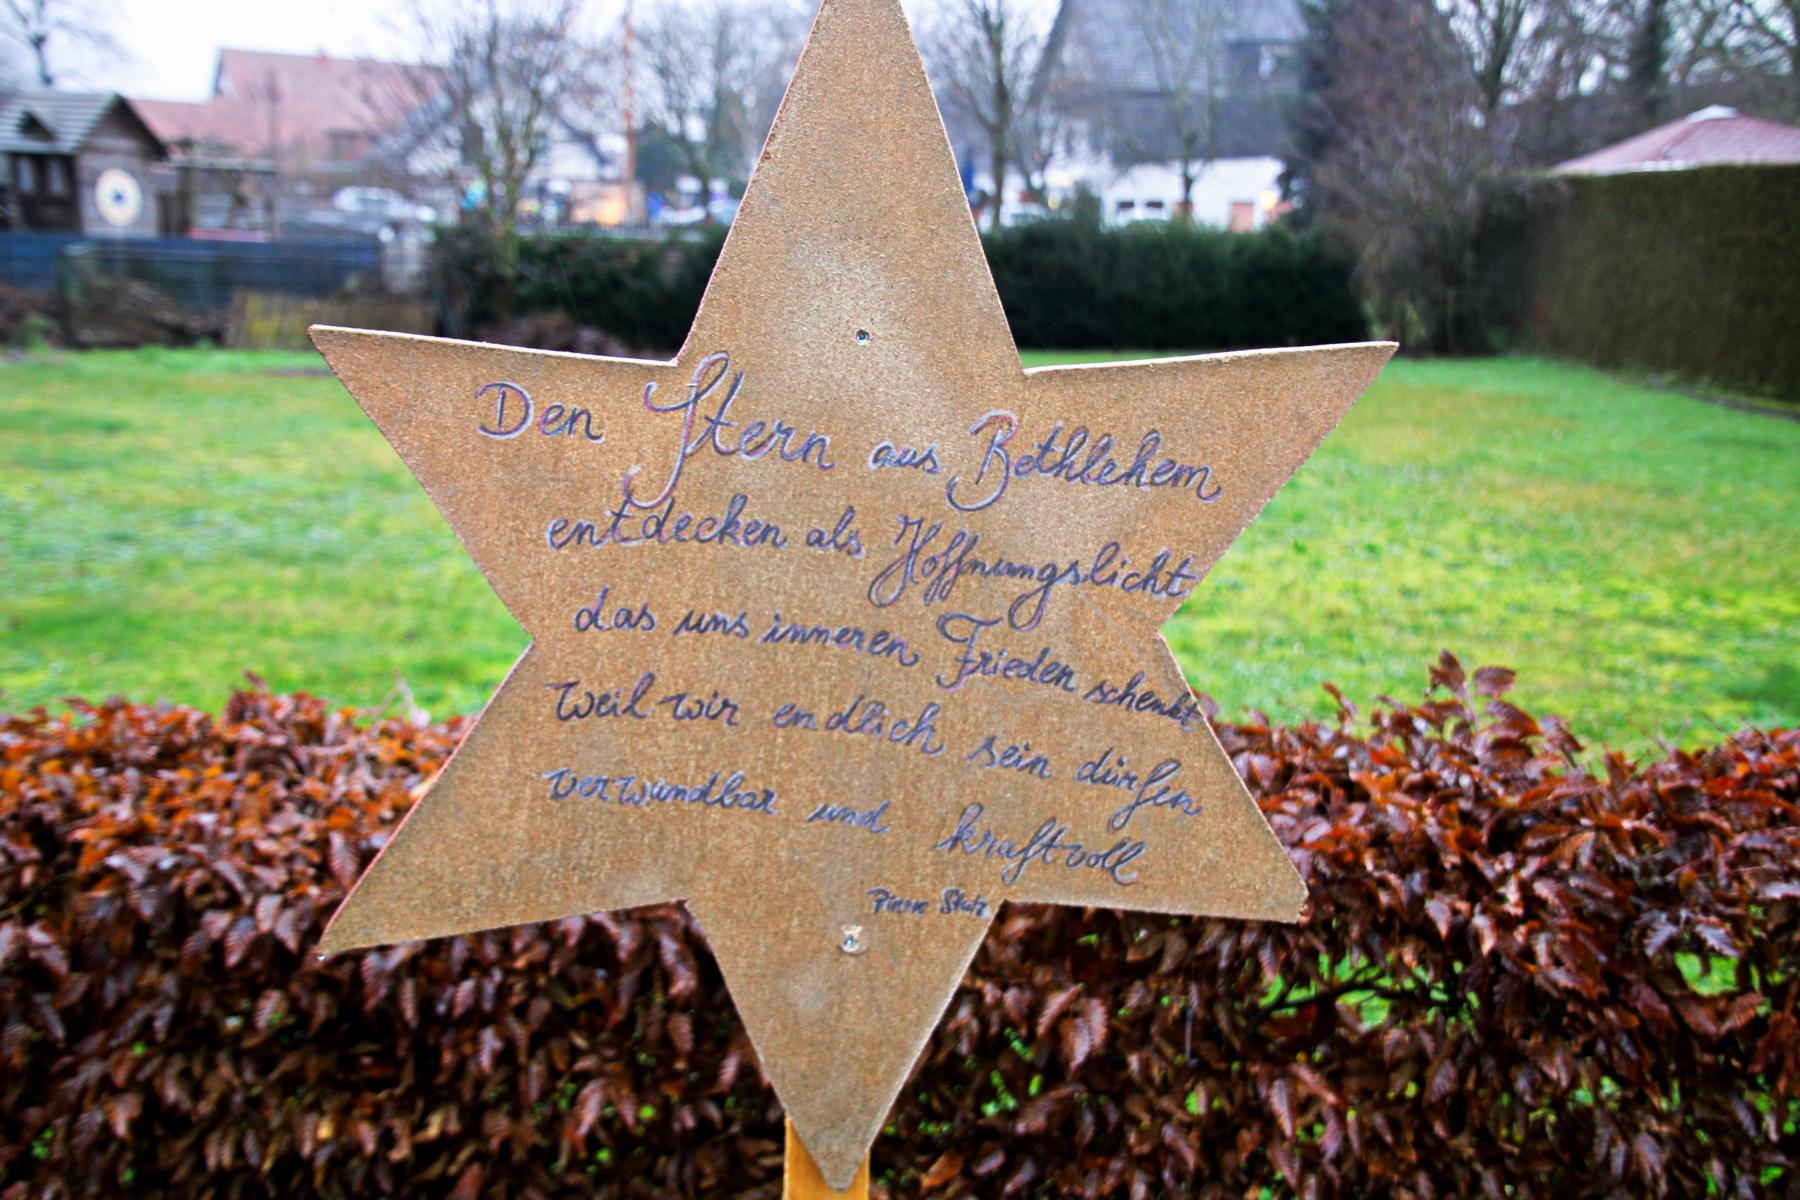 Den Stern aus Bethlehem
entdecken als Hoffnungslicht
das uns inneren Frieden schenkt
weil wir endlich sein dürfen
verwundbar und kraftvoll
Pierre Stutz